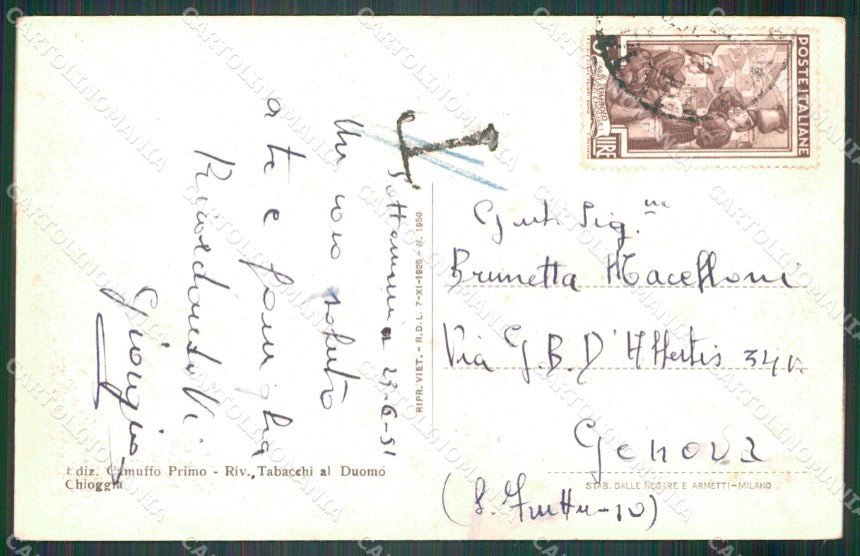 Sottomarina 23-6-51
Un caro saluto
a te e famiglia
Ricordandovi
Giorgio
Ediz. Camuffo Primo - Riv. Tabacchi al Duomo
Chioggia
RIPR. VIET. - R.D.L. 7-XI-1925 - N. 1950
POSTE ITALIANE
LIRE
T
Gent. Sig.na
Brunetta
Via G.B. D'Albertis 34
Genova
STAB. DALLE NOGARE E ARMETTI - MILANO
CARTOLINOMANIA